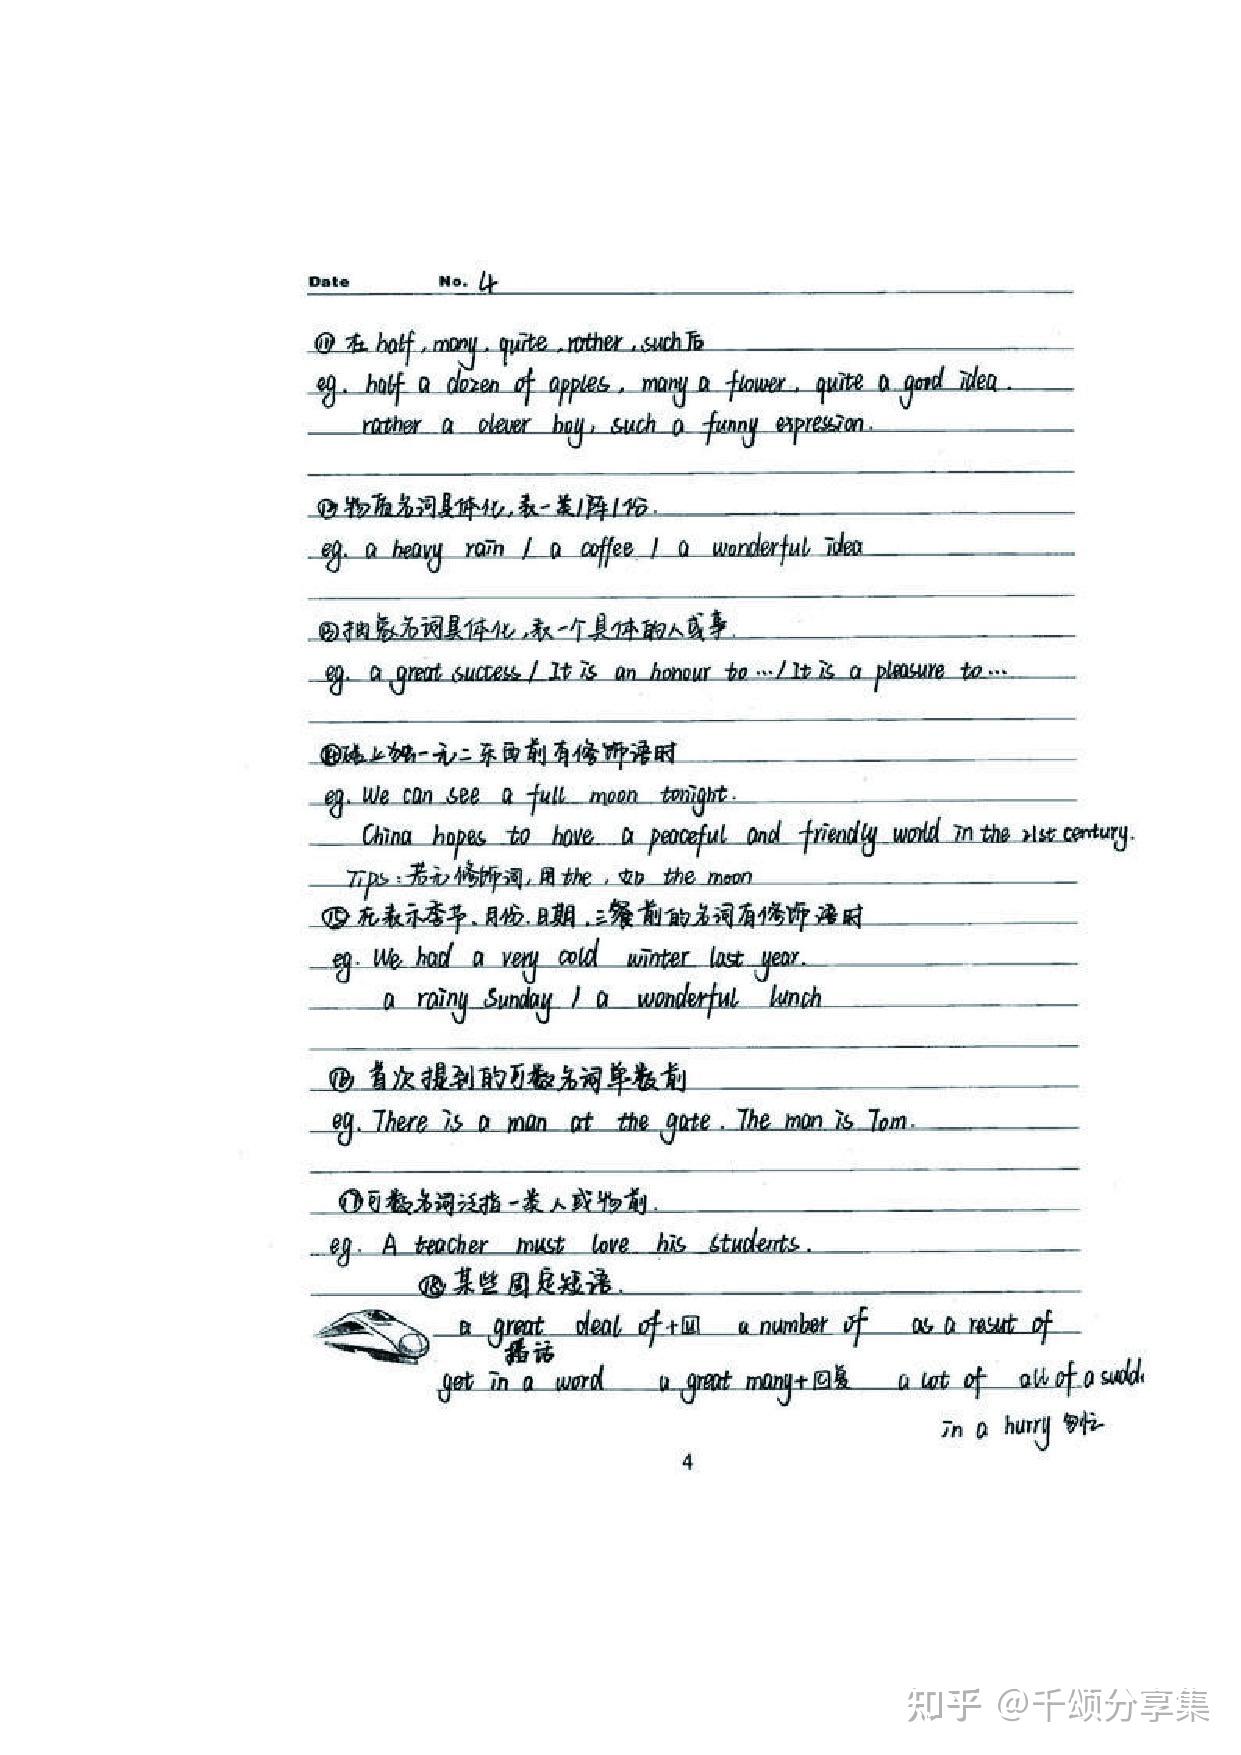 Date No. 4
⑪ 在 half, many, quite, rather, such后
eg. half a dozen of apples, many a flower, quite a good idea.
rather a clever boy, such a funny expression.
⑫物质名词具体化,表一类/阵/份.
eg. a heavy rain / a coffee / a wonderful idea
⑬抽象名词具体化,表一个具体的人或事.
eg. a great success / It is an honour to … / It is a pleasure to …
⑭世上独一无二东西前有修饰语时
eg. We can see a full moon tonight.
China hopes to have a peaceful and friendly world in the 21st century.
Tips: 若无修饰词,用the,如 the moon
⑮在表示季节、月份、日期、三餐前的名词有修饰语时
eg. We had a very cold winter last year.
a rainy Sunday / a wonderful lunch
⑯ 首次提到的可数名词单数前
eg. There is a man at the gate. The man is Tom.
⑰可数名词泛指一类人或物前.
eg. A teacher must love his students.
⑱某些固定短语.
a great deal of + a number of as a result of
插话
get in a word a great many+可复 a lot of all of a sudd.
in a hurry 匆忙
4
知乎 @千颂分享集